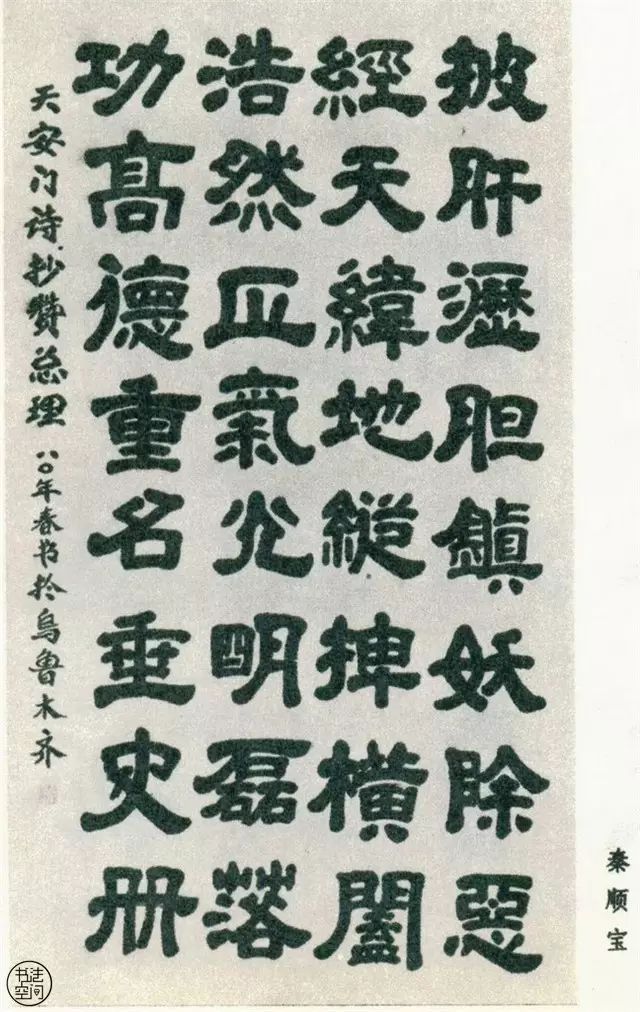 披肝瀝胆鎮妖除惡
經天緯地縱捭橫闔
浩然正氣光明磊落
功高德重名垂史册
天安门诗抄赞总理 八〇年春书於乌鲁木齐
秦顺宝
书法空间